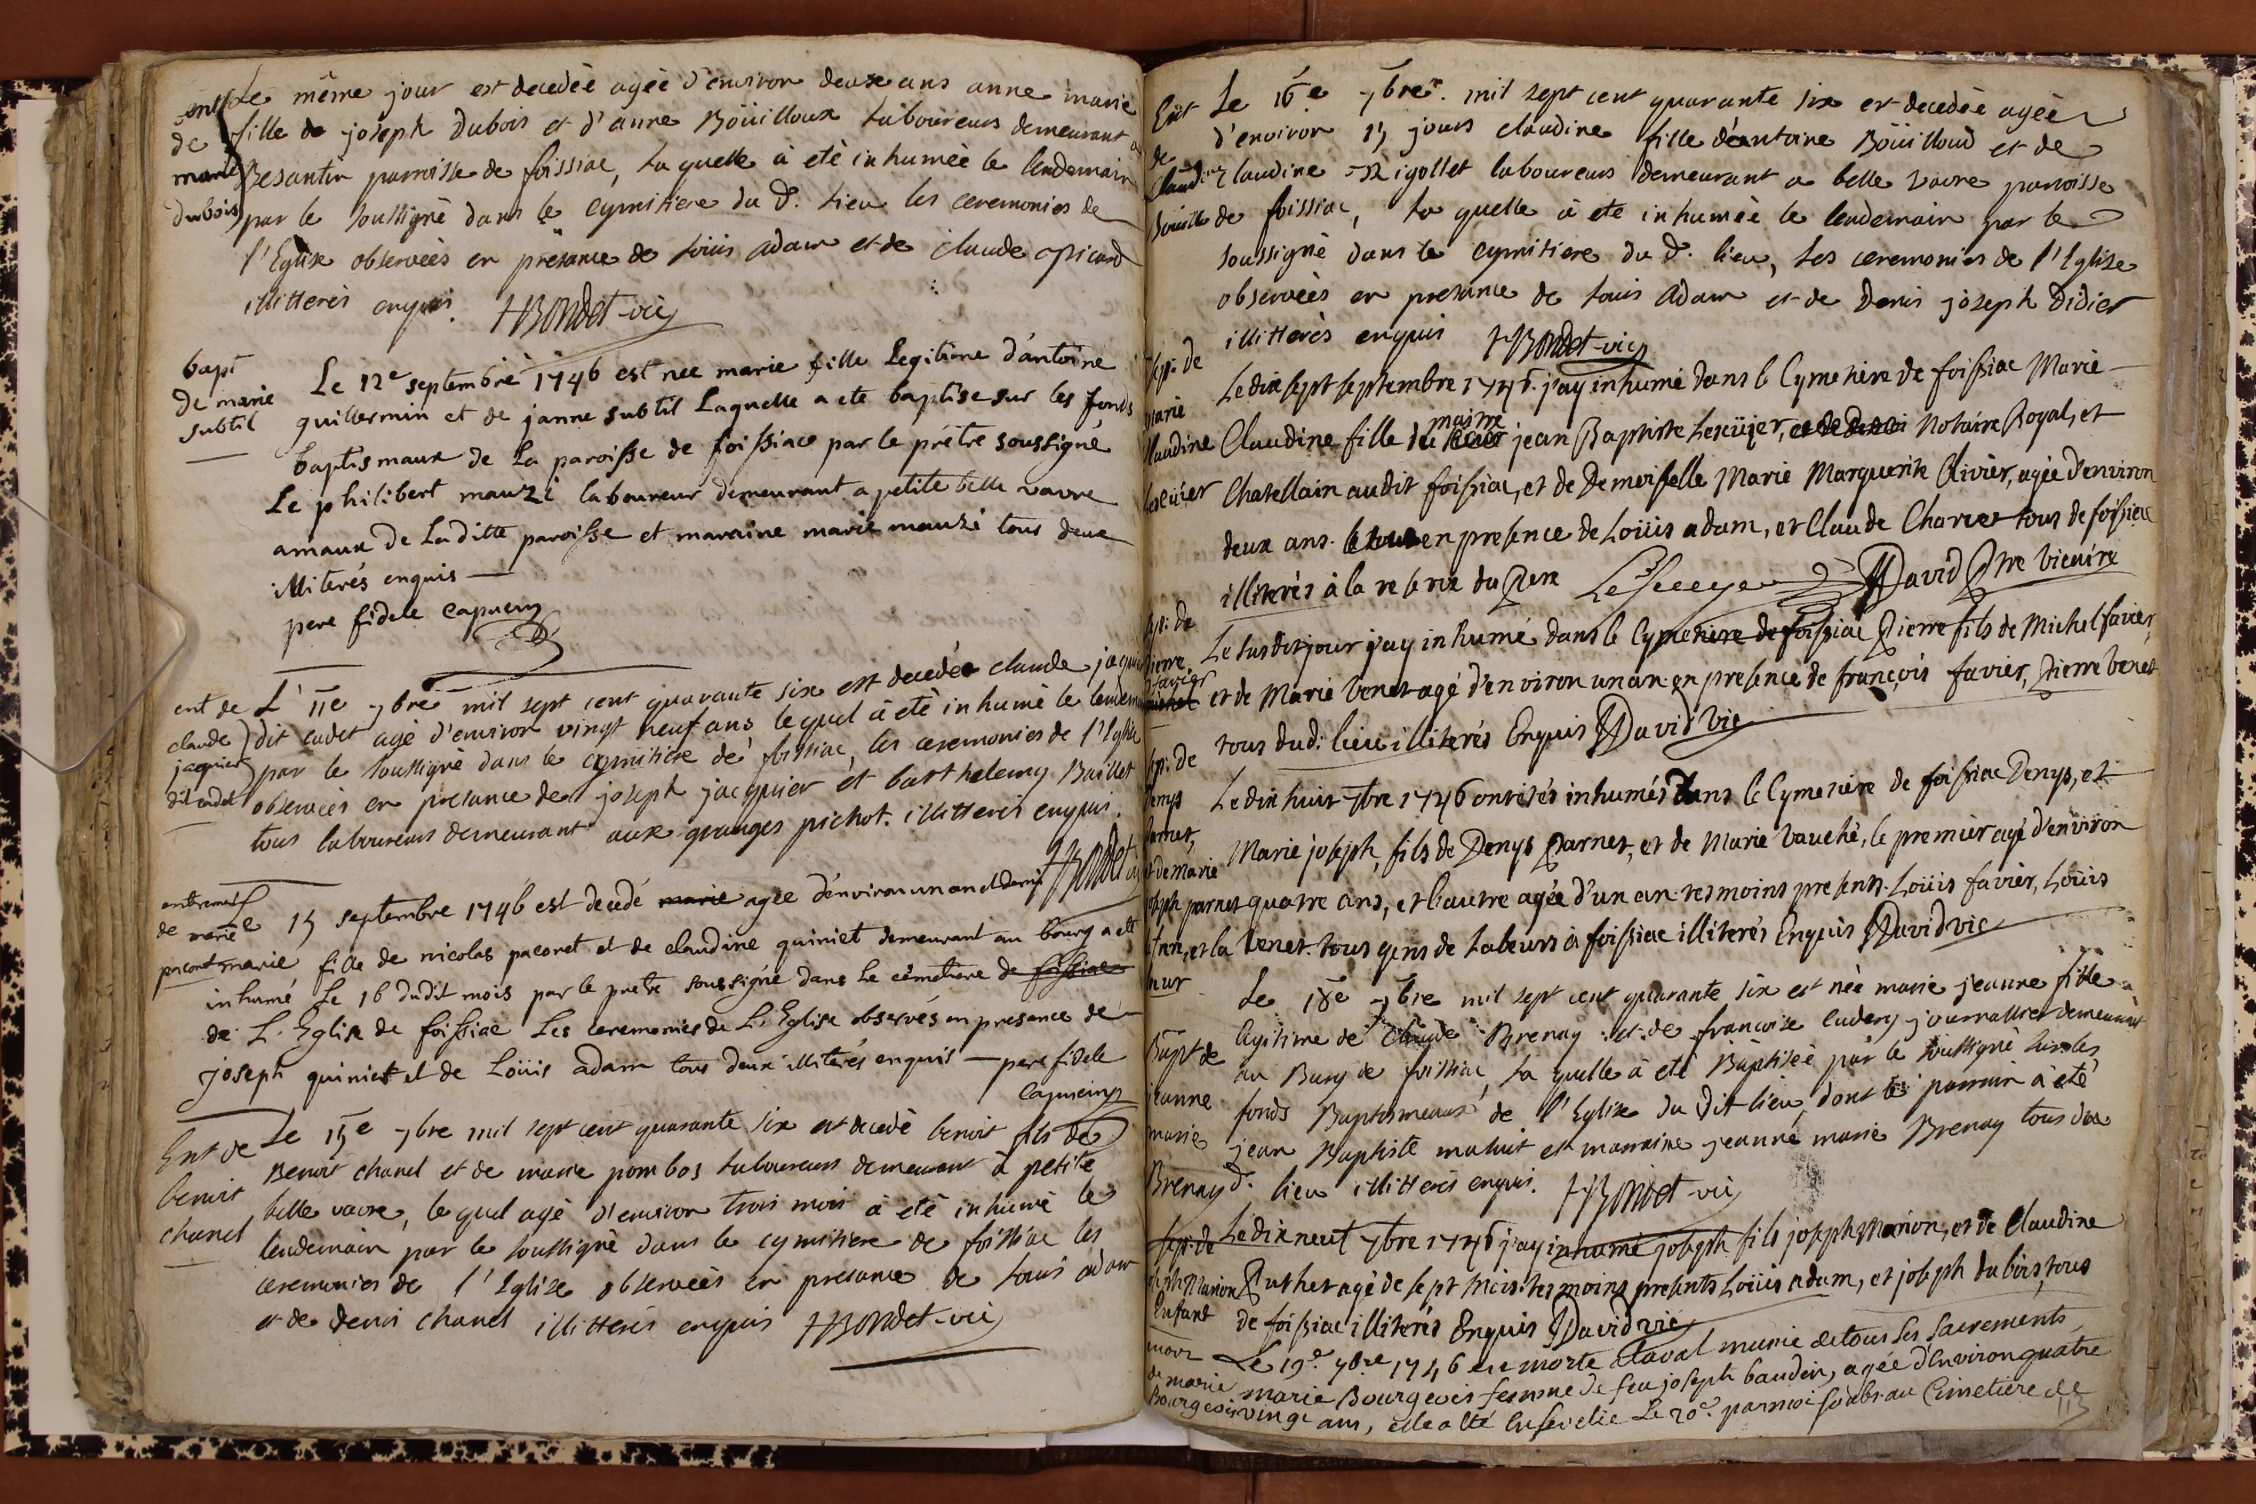 Le même jour est decedèe agèe d'environ deux ans anne marie
fille de joseph Dubois et d'anne Boüilloux laboureurs demeurant a
Besantin parroisse de foissiac, la quelle à etè inhumèe le lendemain
par le soussignè dans le cymitiere du d. lieu les ceremonies de
l'Eglise observèes en prèsance de loüis adam et de claude Picard
illitterès enquis. HBondet-vic
ent
de
marie
dubois
bapt
de marie
subtil
Le 12e septembre 1746 est nee marie fille Legitime d'antoine
guillermin et de janne subtil Laquelle a ete baptise sur les fonds
baptismaux de La paroisse de foissiac par le prétre soussigné
Le philibert mauzi laboureur demeurant a petite belle vavre
amaux de Laditte paroisse et maraine marie mauzi tous deux
illiterés enquis
pere fidele Capucin
ent de
claude
jaquier
dit cadet
L'11e 7bre mil sept cent quarante six est decedèe claude jaquier
dit cadet agè d'environ vingt neuf ans lequel à etè inhumè le lendemain
par le soussignè dans le cymitiere de foissiac, les ceremonies de l'Eglise
observèes en presance de joseph jacquier et barthelemy Buillet
tous laboureurs demeurant aux granges pichot. illitterès enquis.
HBondet vic
enterement
de marie
paconet
Le 15 septembre 1746 est decedé marie agée d'environ un an et demi
marie fille de nicolas paconet et de claudine quiniet demeurant au bourg a eté
inhumé Le 16 dudit mois par le pretre soussigné dans Le cémetiere de foissiac
de L'Eglise de foissiac Les ceremonies de L'Eglise observés en presance de
joseph quiniet et de Loüis adam tous deux illiterés enquis — pere fidele
Capucin
Ent de
benoit
chanel
Le 15e 7bre mil sept cent quarante six est decedè benoit fils de
Benoit chanel et de marie pombos laboureurs demeurant à petite
belle vavre, lequel agè d'environ trois mois à etè inhumè le
lendemain par le soussignè dans le cymitiere de foissiac les
ceremonies de l'Eglise observèes en presance de louis adam
et de denis chanel illitterès enquis HBondet-vic
Ent
de
Claudine
Boüilloud
Le 16e 7bre. mil sept cent quarante six est decedèe agèe
d'environ 15 jours claudine fille d'antoine Boüilloud et de
claudine Rigollet laboureurs demeurant a belle vavre paroisse
de foissiac, la quelle à ete inhumèe le lendemain par le
soussignè dans le cymitiere du d. lieu, les ceremonies de l'Eglise
observèes en presance de louis Adam et de denis joseph didier
illitterès enquis HBondet-vic
sep. de
Marie
Claudine
Lescüier
Le dix sept septembre 1746. j'ay inhumé dans le Cymetière de foissiac Marie
Claudine fille du maitre jean Baptiste Lescüjer, Notaire Royal, et
Chatellain audit foissiac, et de Demoiselle Marie Marguerite Olivier, agée d'environ
deux ans. en presence de Loüis adam, et Claude Charvet tous de foissiac
illiterés à la reserve du Pere Lescuyer David Ptre Vicaire
sep. de
Pierre
favier
Le susdit jour j'ay inhumé dans le Cymetière de foissiac Pierre fils de Michel favier,
et de Marie Venet agé d'environ un an en presence de françois favier, Pierre Venet
tous dud. lieu illiterés Enquis David Vic
sep. de
Denys
Parnet,
et de marie
joseph parnet
Le dix huit 7bre 1746 ont étés inhumés dans le Cymetière de foissiac Denys, et
Marie joseph, fils de Denys Parnet, et de Marie Vauché, le premier agé d'environ
quatre ans, et l'autre agée d'un an. tesmoins presents. Loüis favier, Loüis
Venet. tous gens de Labeurs à foissiac illiterés Enquis David vic
Bapt de
jeanne
marie
Brenay
Le 18e 7bre mil sept cent quarante six est nèe marie jeanne fille
legitime de claude Brenay et de francoise cudery journallier demeurant
au Burg de foissiac, la quelle à etè Baptisèe par le soussignè sur les
fonds Baptismeaux de l'Eglise du dit lieu, dont le parrain à etè
jean Baptiste mahuit et marraine jeanne marie Brenay tous du
d. lieu illitterès enquis. HBondet-vic
sep. de
joseph Marion
Enfant
Le dix neuf 7bre 1746 j'ay inhumé joseph fils joseph Marion, et de Claudine
Puthet agé de sept mois. tesmoins presents Loüis adam, et joseph dubois, tous
de foissiac illiterés Enquis David vic
mort
de marie
Bourgeois
Le 19e. 7bre 1746 est morte a laval munie de tous ses sacrements
marie Bourgeois femme de feu joseph baudin, agée d'Environ quatre
vingt ans, elle a eté Ensevelie Le 20e. par moi soubs. au Cimetiere de